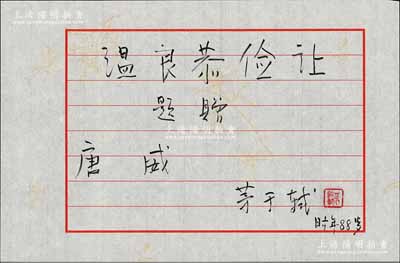 温良恭俭让
题赠
唐 威
茅于轼
时年88岁
上海阳明拍卖
上海阳明拍卖